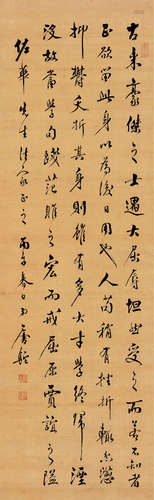 古来豪傑之士遇大屈辱坦然受之而若不知者
正欲留此身以為後日用也人苟稍有挫折輒忿懑
抑鬱夭折其身則雖有多大才學終歸湮
没故當學句踐范雎之宏而戒屈原賈誼之隘
佐華先生法家正之 丙午春日